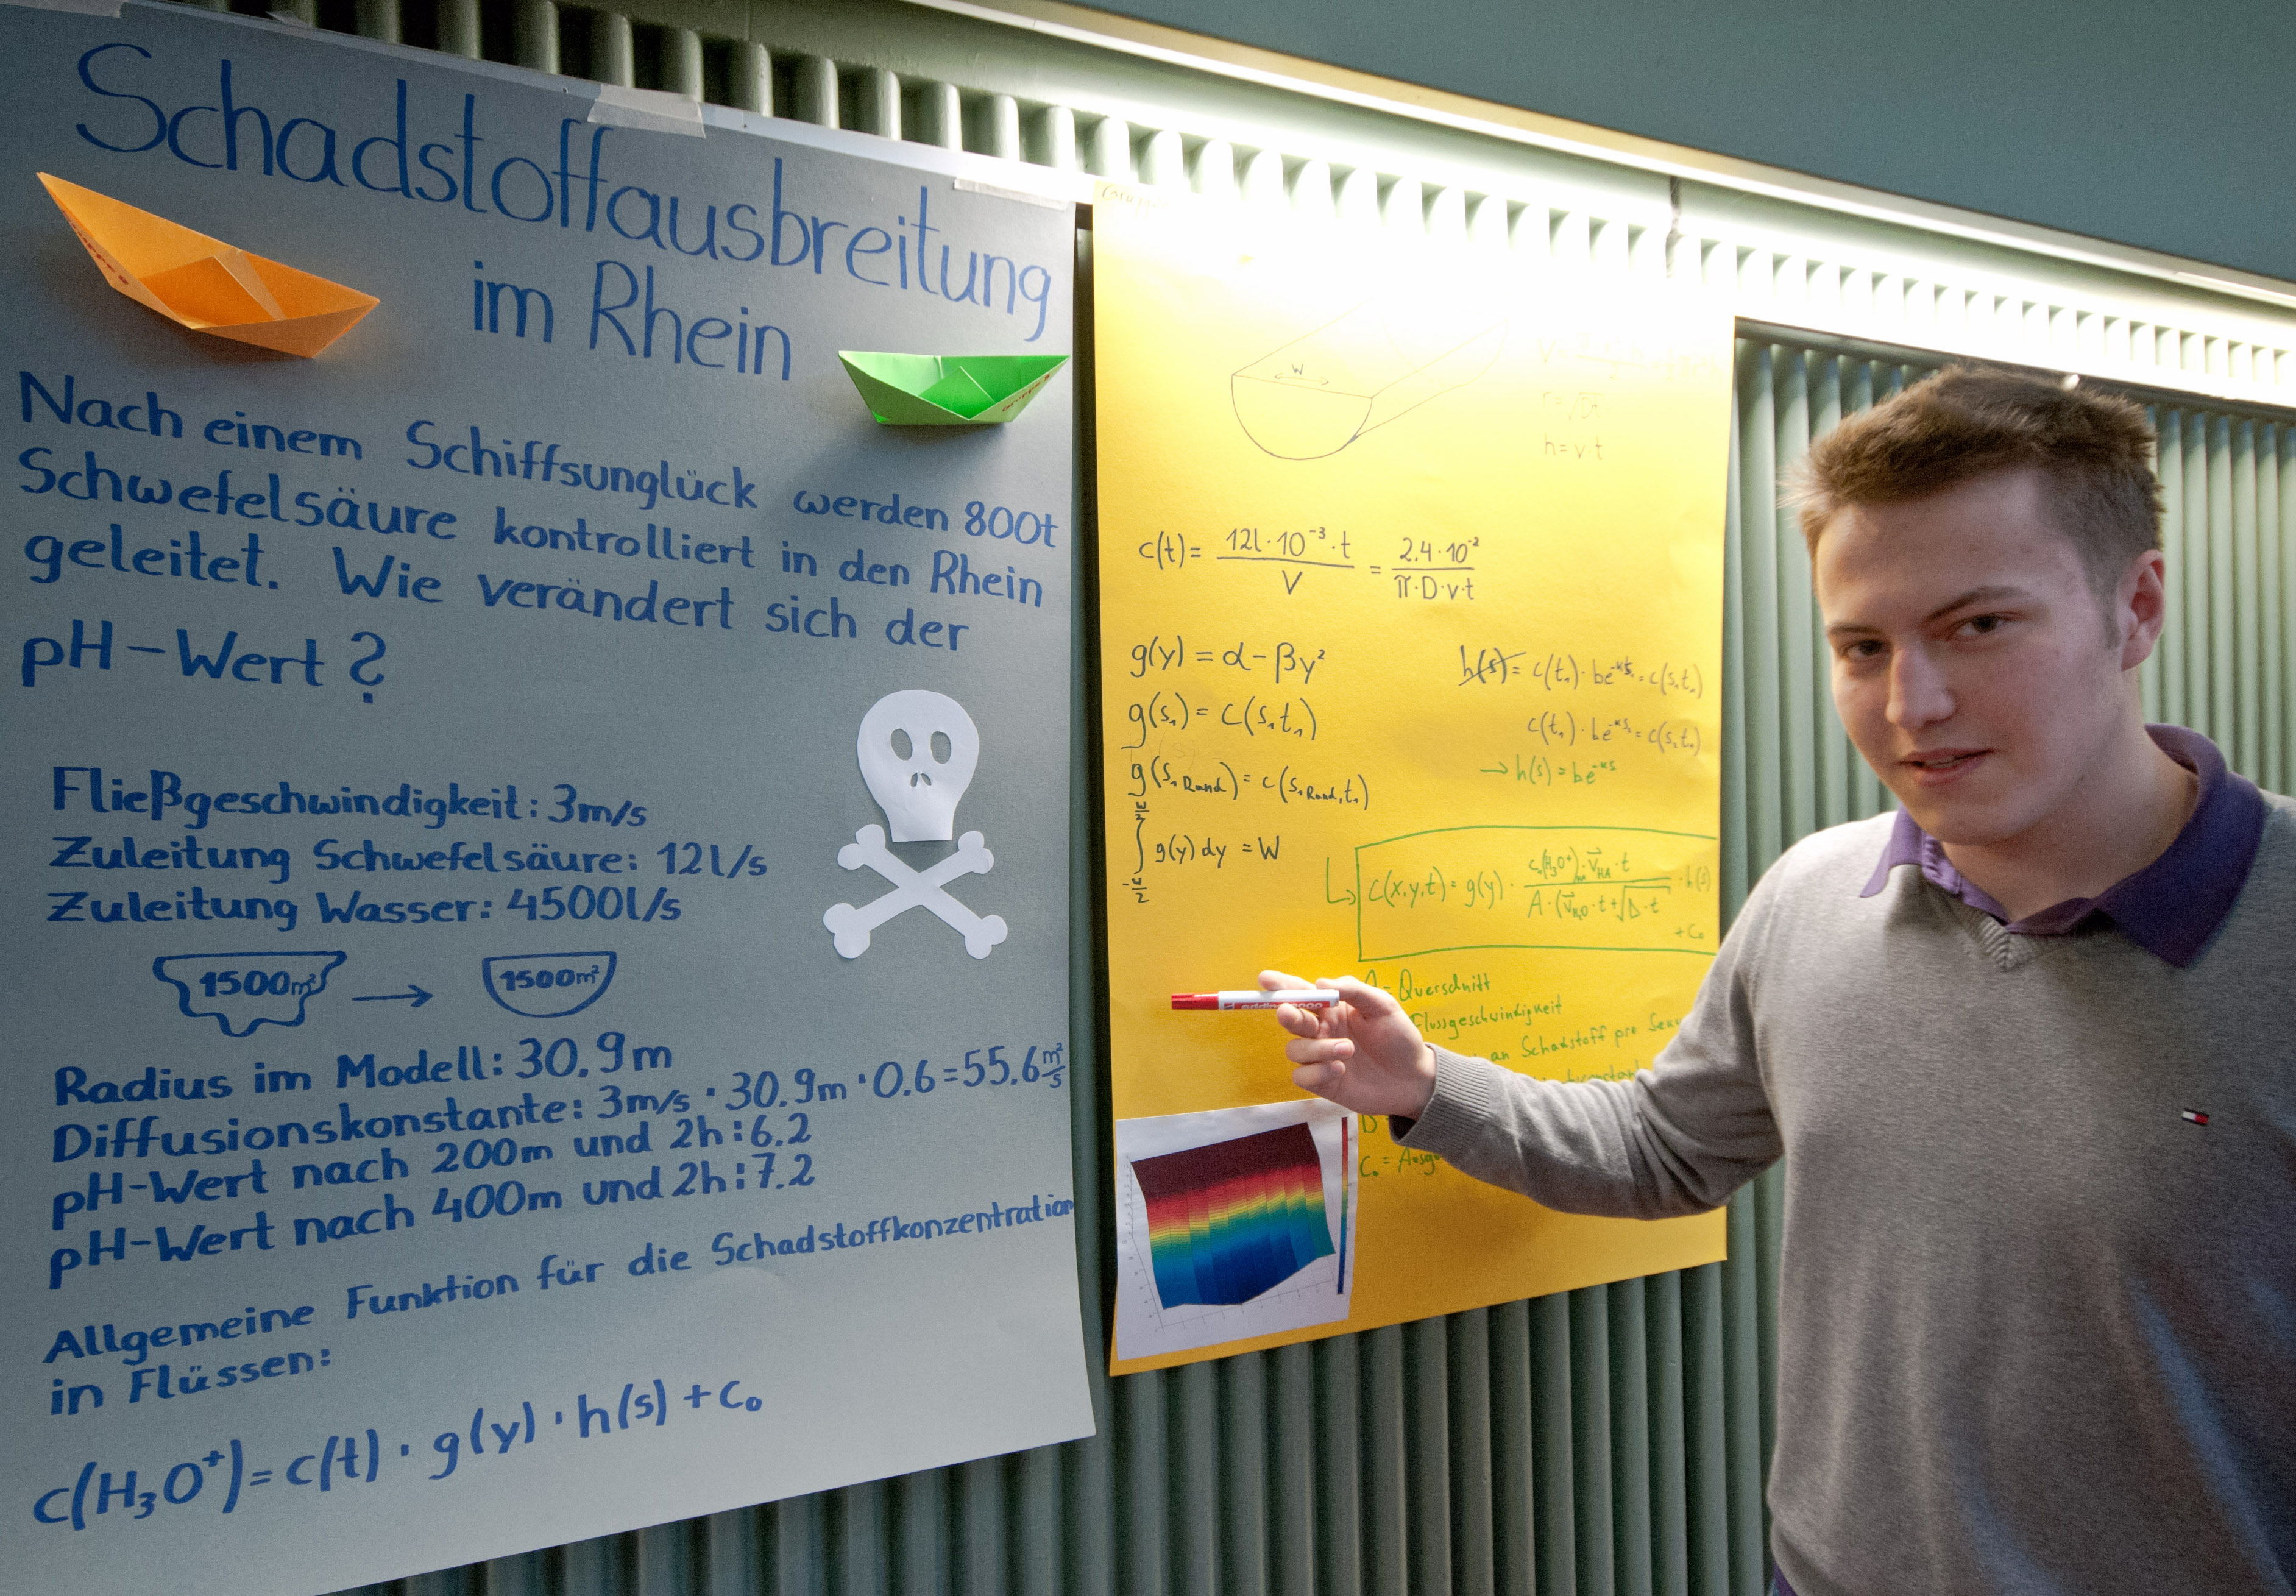 Schadstoffausbreitung
im Rhein
Nach einem Schiffsunglück werden 800t
Schwefelsäure kontrolliert in den Rhein
geleitet. Wie verändert sich der
pH-Wert?
Fließgeschwindigkeit: 3m/s
Zuleitung Schwefelsäure: 12l/s
Zuleitung Wasser: 4500l/s
1500m² → 1500m²
Radius im Modell: 30.9m
Diffusionskonstante: 3m/s · 30.9m · 0.6 = 55.6 m²/s
pH-Wert nach 200m und 2h: 6.2
pH-Wert nach 400m und 2h: 7.2
Allgemeine Funktion für die Schadstoffkonzentration
in Flüssen:
c(H₃O⁺) = c(t) · g(y) · h(s) + c₀
W
r = √Dt
h = v·t
c(t) = 12l·10⁻³·t / V = 2.4·10⁻² / π·D·v·t
g(y) = α - βy²
g(s₁) = c(s₁t₁)
g(s₁ Rand) = c(s₁ Rand, t₁)
∫ g(y) dy = W
w/2
-w/2
h(s) = c(t₁)·be⁻ᵏˢ¹ = c(s₁t₁)
c(t₁)·be⁻ᵏˢ² = c(s₂t₁)
→ h(s) = be⁻ᵏˢ
c(x,y,t) = g(y) · c₀(H₃O⁺)·V⃗·t / A·(V⃗·t+√D·t · h(s)
+ c₀
= Querschnitt
Flussgeschwindigkeit
an Schadstoff pro
D
c₀ =
edding